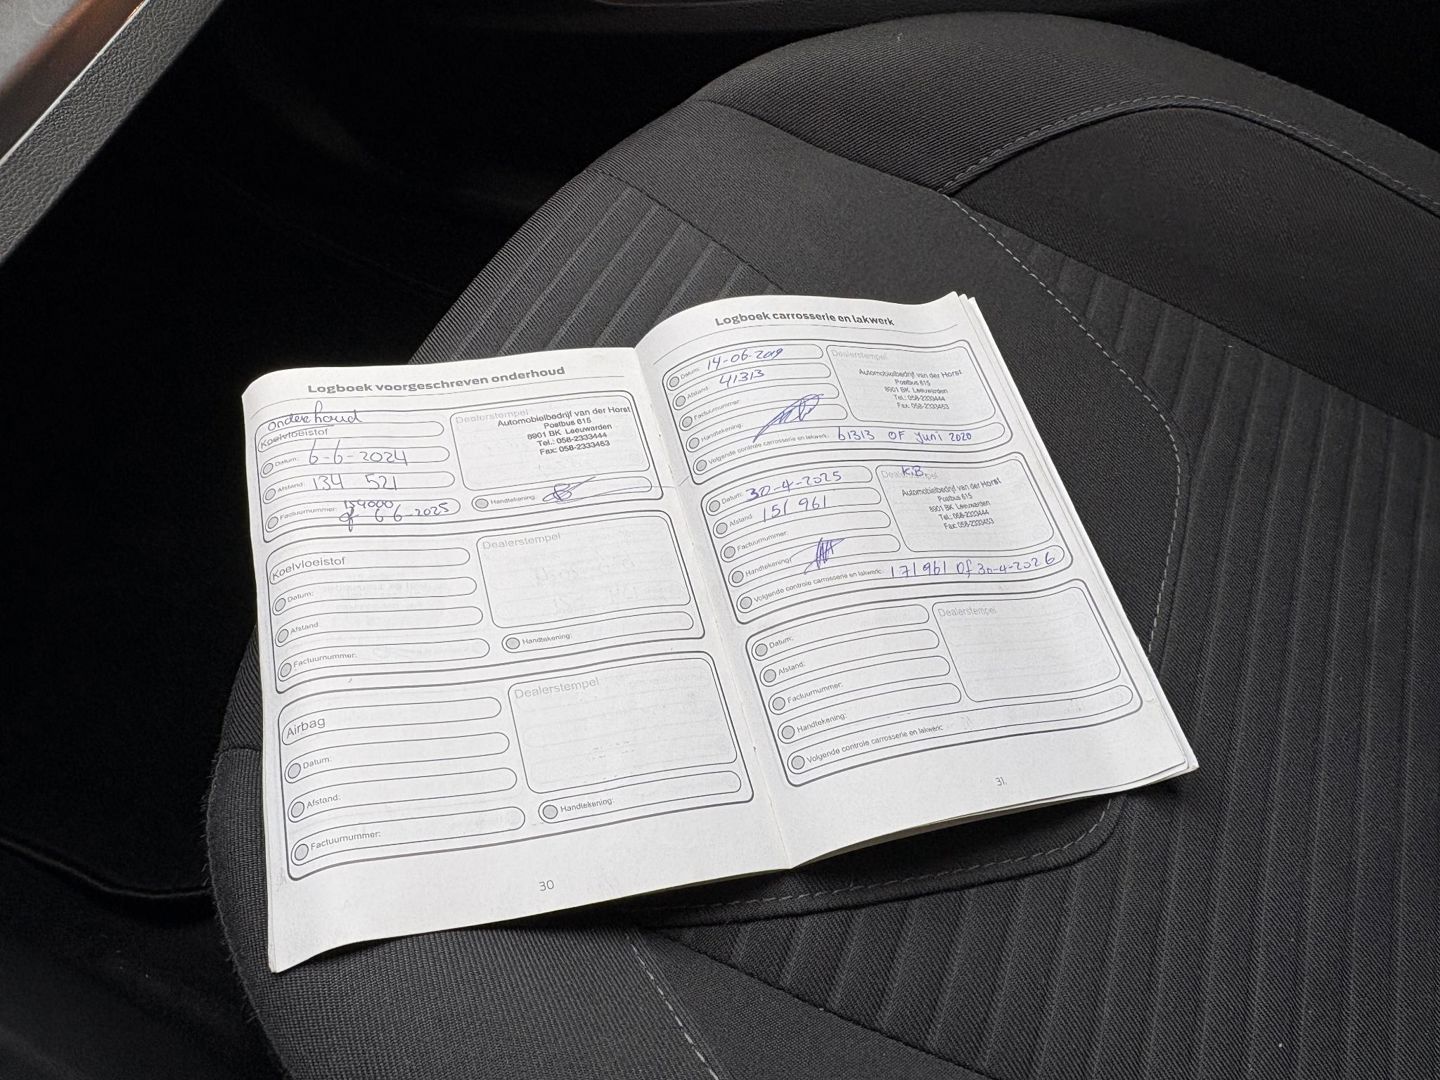 Logboek voorgeschreven onderhoud
onderhoud
Koelvloeistof
Datum: 6-6-2024
Afstand: 134 521
Factuurnummer: 154000
of 6-6-2025
Dealerstempel
Automobielbedrijf van der Horst
Postbus 615
8901 BK Leeuwarden
Tel.: 058-2333444
Fax: 058-2333453
Handtekening:
Koelvloeistof
Datum:
Afstand:
Factuurnummer:
Dealerstempel
Handtekening:
Airbag
Datum:
Afstand:
Factuurnummer:
Dealerstempel
Handtekening:
30
Logboek carrosserie en lakwerk
Datum: 14-06-2019
Afstand: 41313
Factuurnummer:
Handtekening:
Volgende controle carrosserie en lakwerk: 61313 OF Juni 2020
Dealerstempel
Automobielbedrijf van der Horst
Postbus 615
8901 BK Leeuwarden
Tel.: 058-2333444
Fax: 058-2333453
Datum: 30-4-2025
Afstand: 151 961
Factuurnummer:
Handtekening:
Volgende controle carrosserie en lakwerk: 171961 Of 30-4-2026
Dealerstempel
K.B.
Automobielbedrijf van der Horst
Postbus 615
8901 BK Leeuwarden
Tel.: 058-2333444
Fax: 058-2333453
Datum:
Afstand:
Factuurnummer:
Handtekening:
Volgende controle carrosserie en lakwerk:
Dealerstempel
31.